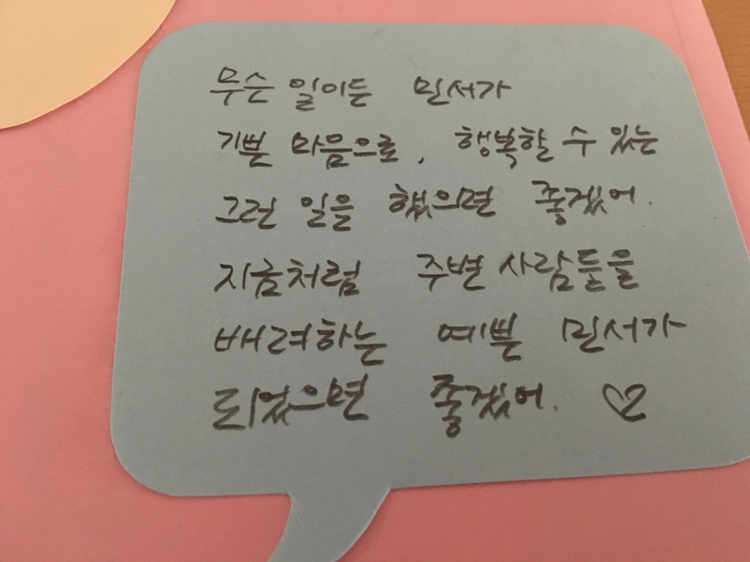 무슨 일이든 민서가
기쁜 마음으로, 행복할 수 있는
그런 일을 했으면 좋겠어.
지금처럼 주변 사람들을
배려하는 예쁜 민서가
되었으면 좋겠어. ♡